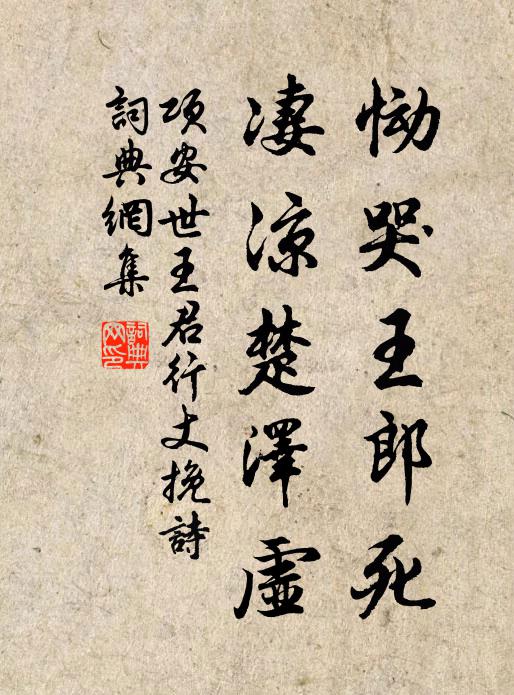 恸哭王郎死
凄涼楚澤虛
项安世王君行丈挽詩
詞典網集
詞典網印